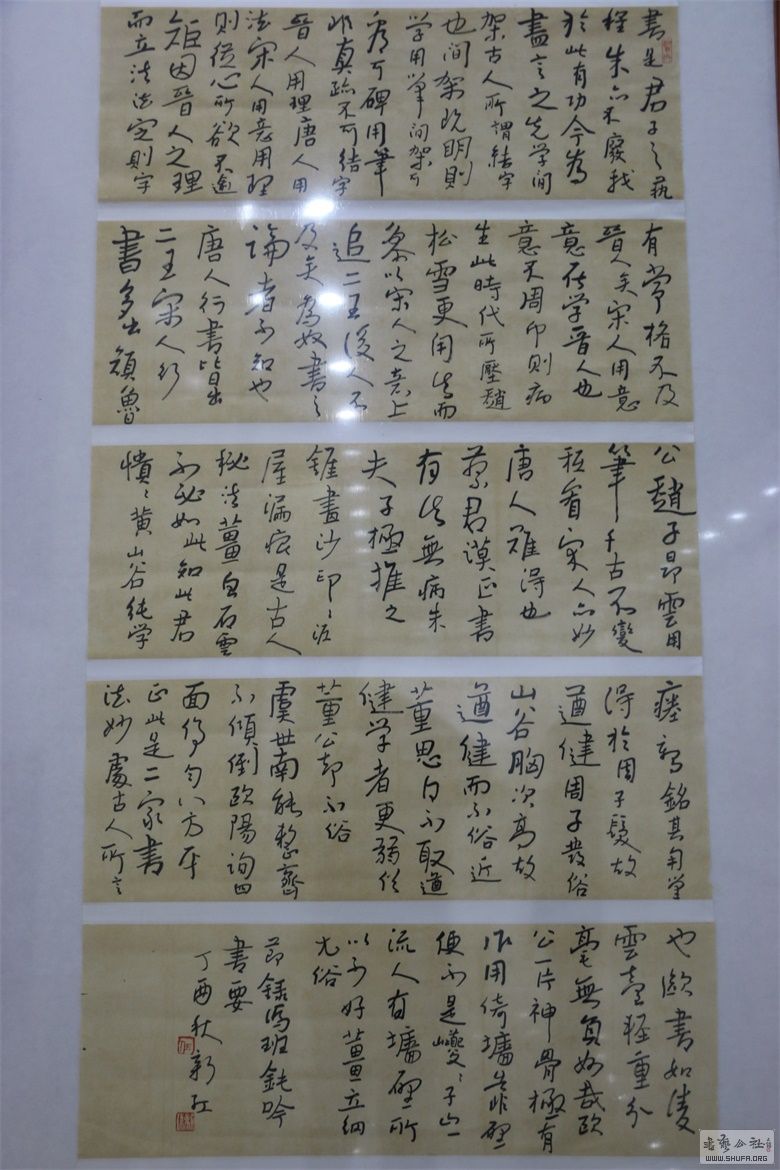 書是君子之藝
程朱亦不廢我
於此有功今為
盡言之先学間
架古人所謂結字
也間架既明則
学用筆間架可
看石碑用筆
非真跡不可結字
晉人用理唐人用
法宋人用意用理
則從心所欲不逾
矩因晉人之理
而立法法定則字
有常格不及
晉人矣宋人用意
意在学晉人也
意不周帀則病
生此時代所壓趙
松雪更用法而
參以宋人之意上
追二王後人不
及矣為奴書之
論者不知也
唐人行書皆出
二王宋人行
書多出顏魯
公趙子昂雲用
筆千古不變
秖看宋人亦妙
唐人難得也
蔡君謨正書
有法無病朱
夫子極推之
錐畫沙印印泥
屋漏痕是古人
秘法薑白石雲
不必如此知此君
憒憒黃山谷純学
瘞鶴銘其用筆
得於周子發故
遒健周子發俗
山谷胸次高故
遒健而不俗近
董思白不取遒
健学者更弱俗
董公却不俗
虞世南能整齊
不傾倒歐陽詢四
面停勻八方平
正此是二家書
法妙處古人所言
也歐書如淩
雲臺輕重分
毫無負妙哉歐
公一片神骨極有
作用倚墻靠壁
便不是孌孌子山一
流人有墻壁所
以不好薑立綱
尤俗
節錄馮班鈍吟
書要
丁酉秋新紅
书艺公社
WWW.SHUFA.ORG